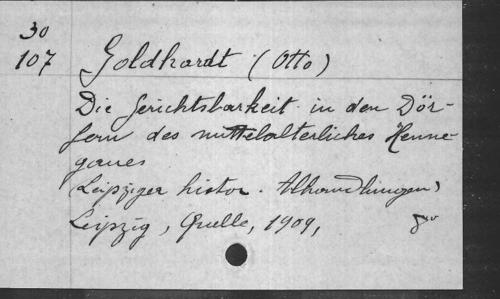 30
107 Goldhardt (Otto)
Die Gerichtsbarkeit in den Dör-
fern des mittelalterliches Henne-
gaues
(Leipziger histor. Abhandlungen)
Leipzig, Quelle, 1909, 8vo